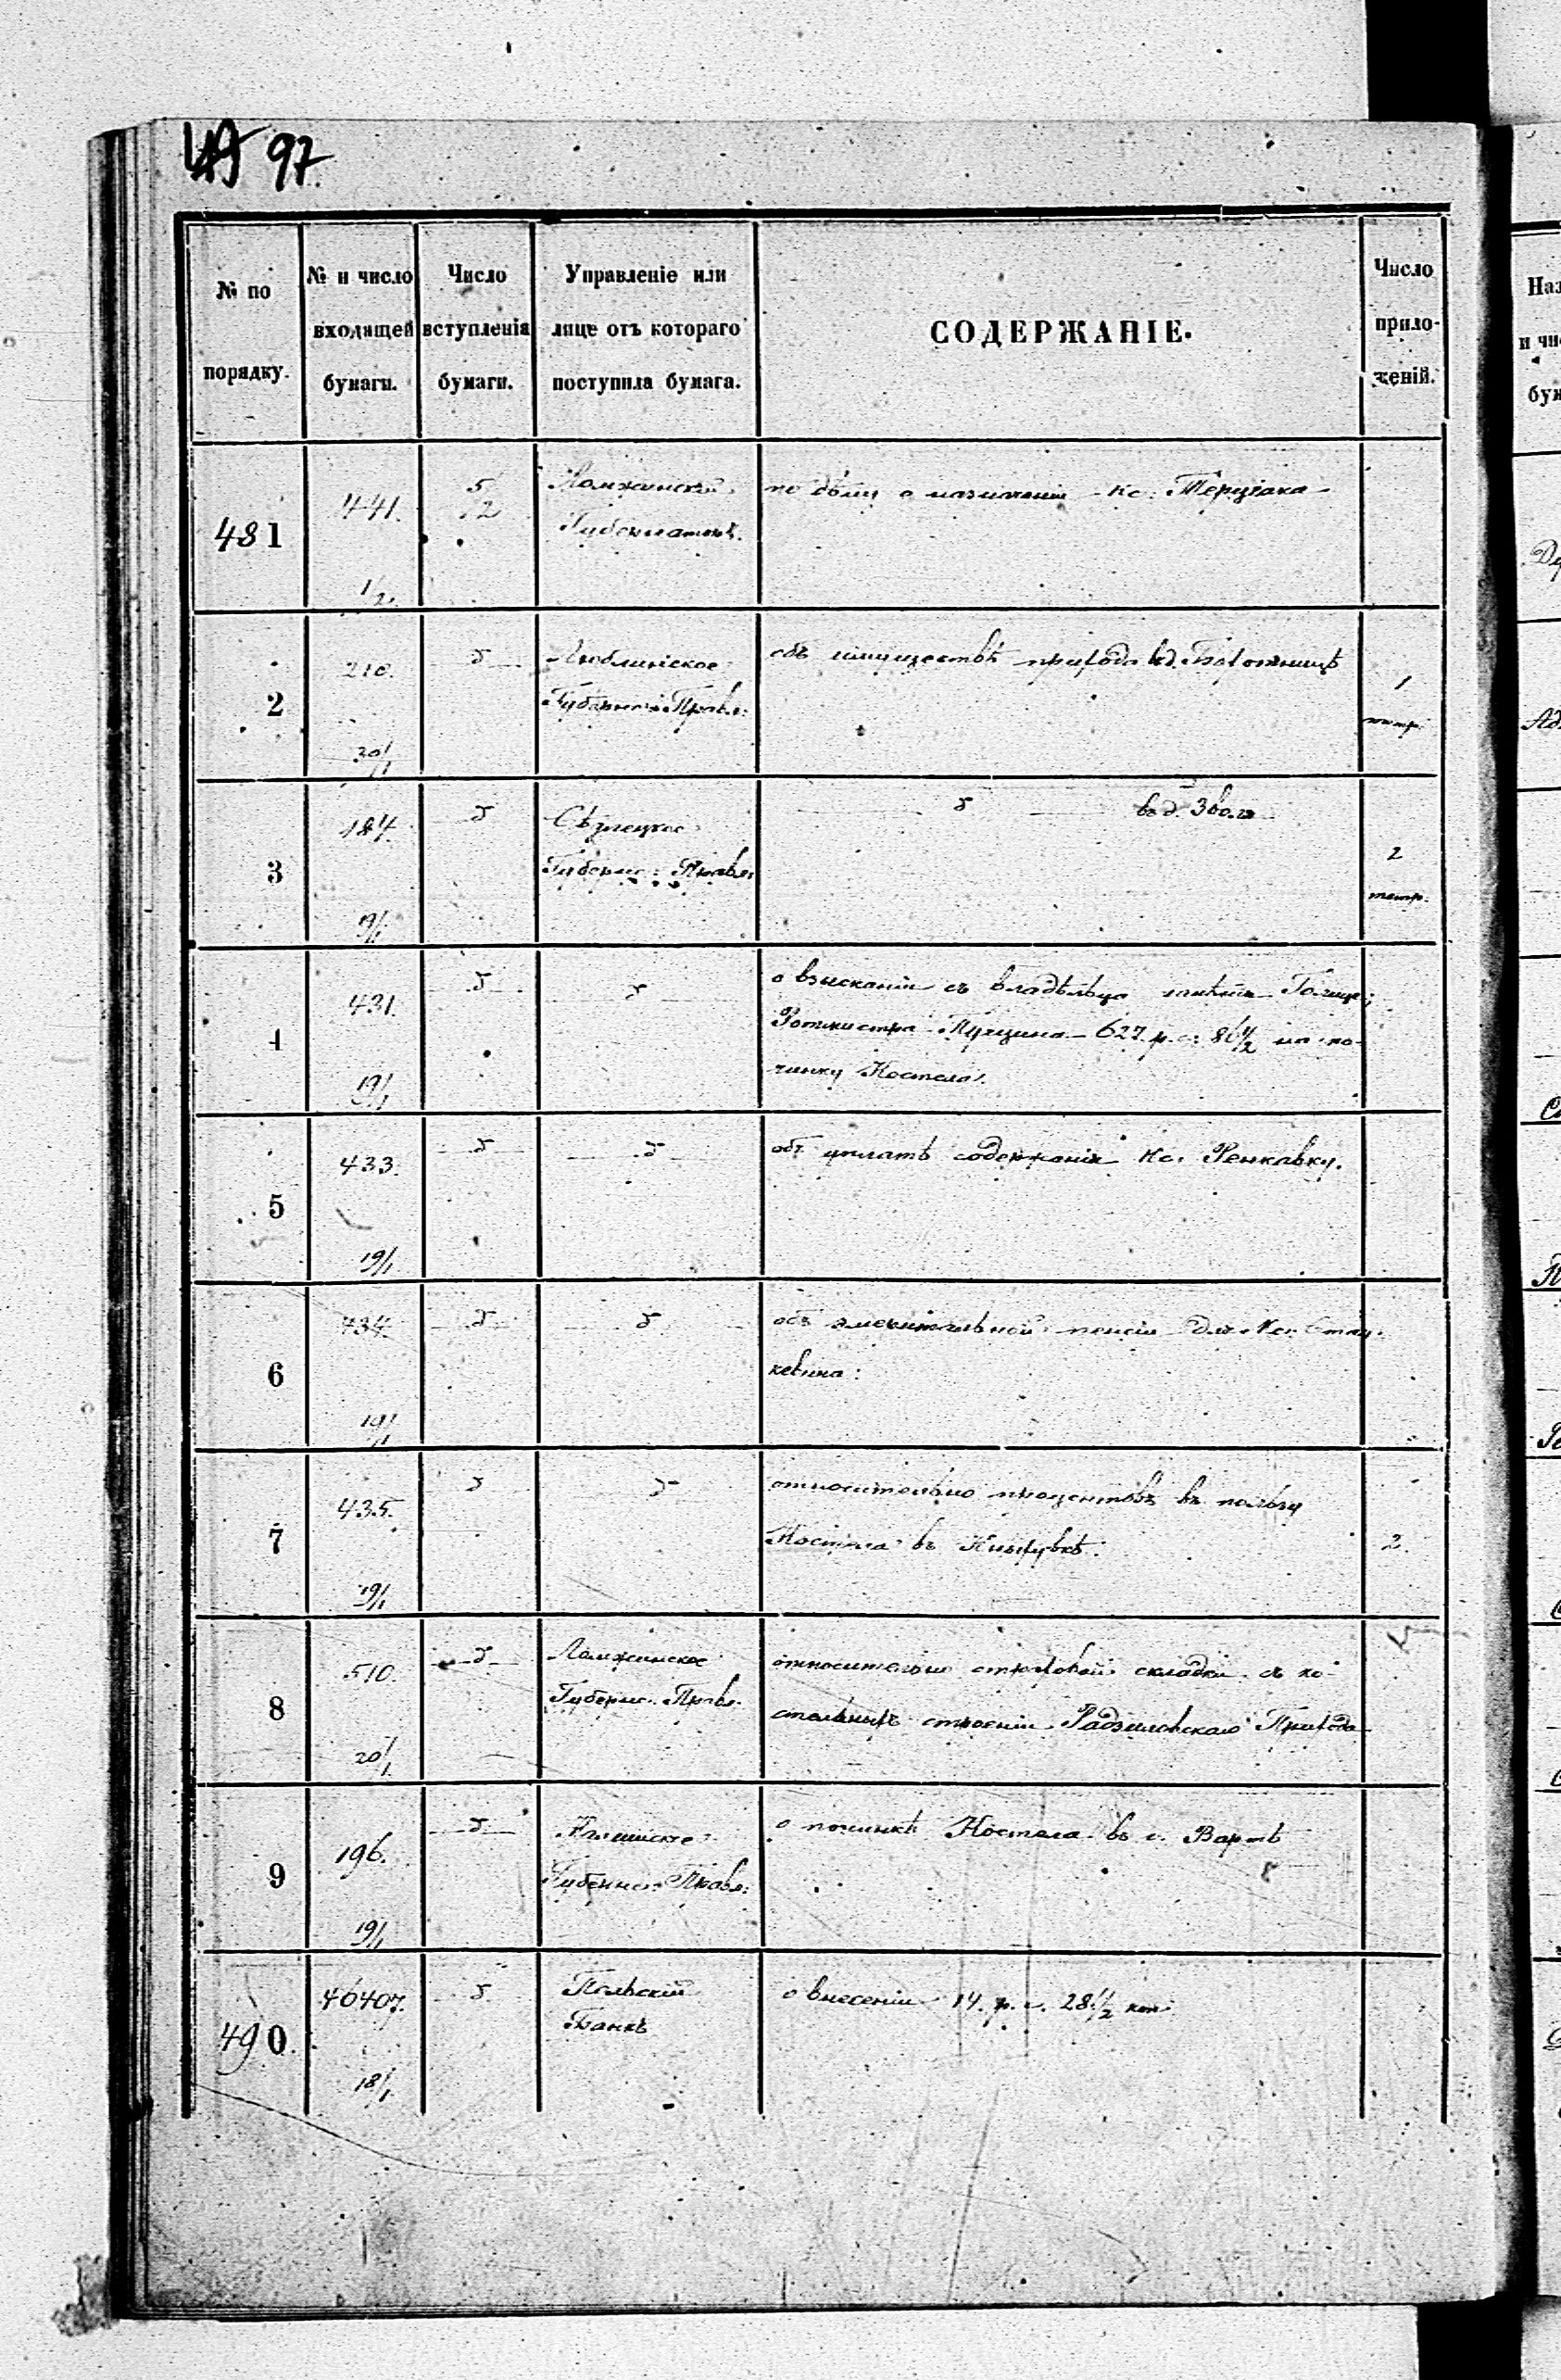 49 97.
№ по порядку.
№ и число входящей бумаги.
Число вступленія бумаги.
Управленіе или лице отъ котораго поступила бумага.
СОДЕРЖАНІЕ.
Число приложеній.
481
441.
1/2.
5
2
Ломжинскій
Губернаторъ.
по дѣлу о назначеніи Кс.
2
210.
30/1
Люблинское
Губернск: Правл:
объ имуществѣ прихода в д.
1
тетр.
3
184.
19/1
Сѣдлецкое
Губернс: Правл:
в д. Звола
2
тетр.
4
431.
19/1
о взысканіи съ владѣльца имѣнія
Ротмистра Пущина 627 р. с. 86 1/2 на по-
чинку Костела.
5
433.
19/1
объ уплатѣ содержанія Кс. Ренкавку.
6
434.
19/1
объ эмеритальной пенсіи для Кс.
7
435.
19/1
относительно процентовъ въ пользу
Костела въ
2.
8
510.
20/1
Ломжинское
Губернс. Правл.
относительно страховой складки съ ко-
стельныхъ строеній Радзиловскаго Прихода
9
196.
19/1
Калишское
Губернс: Правл:
о починкѣ Костела въ г. Вартѣ
490.
40407.
18/1
Польскій
Банкъ
о внесеніи 14 р. с. 28 1/2 коп.